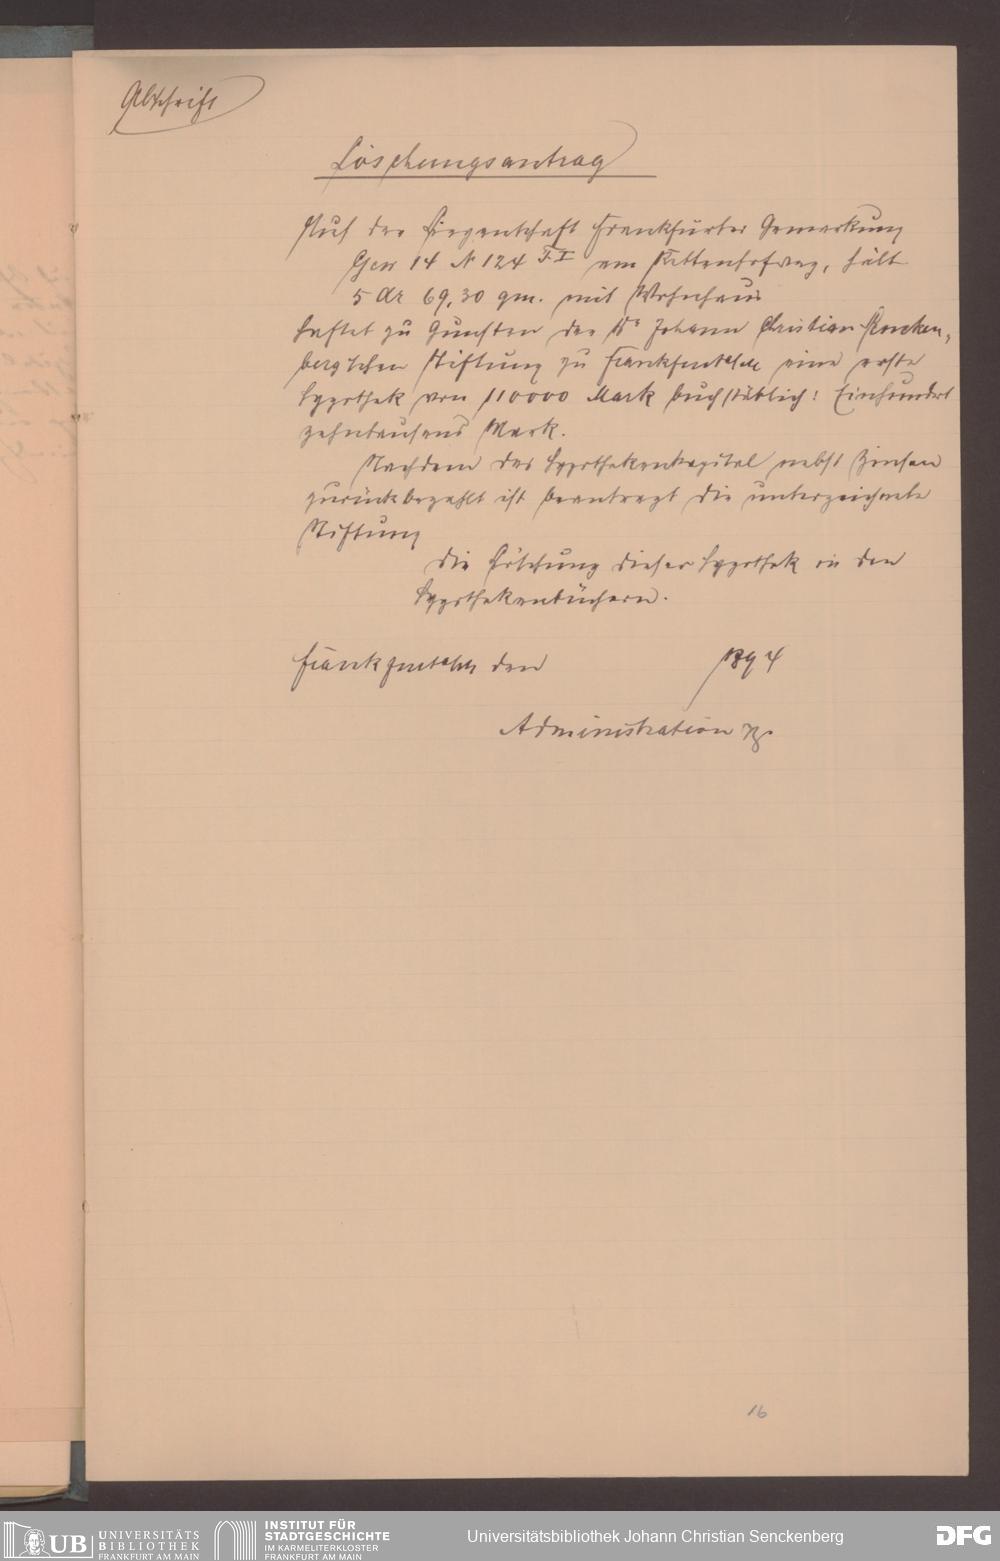 Abschrift
Löschungsantrag
Auf der Liegenschaft Frankfurter Gemarkung
Gew 14 N 124 am Kettenhofweg, hält
5 Ar 69,30 qm. mit Wohnhaus
haftet zu Gunsten der Dr Johann Christian Sencken-
bergischen Stiftung zu Frankfurt a/M eine erste
Hypothek von 110000 Mark buchstäblich: Einhundert
zehntausend Mark.
Nachdem das Hypothekenkapital nebst Zinsen
zurückbezahlt ist beantragt die unterzeichnete
Stiftung
die Löschung dieser Hypothek in den
Hypothekenbüchern.
Frankfurt a/M den 1894
Administration
16
UB UNIVERSITÄTS
BIBLIOTHEK
FRANKFURT AM MAIN
INSTITUT FÜR
STADTGESCHICHTE
IM KARMELITERKLOSTER
FRANKFURT AM MAIN
Universitätsbibliothek Johann Christian Senckenberg
DFG